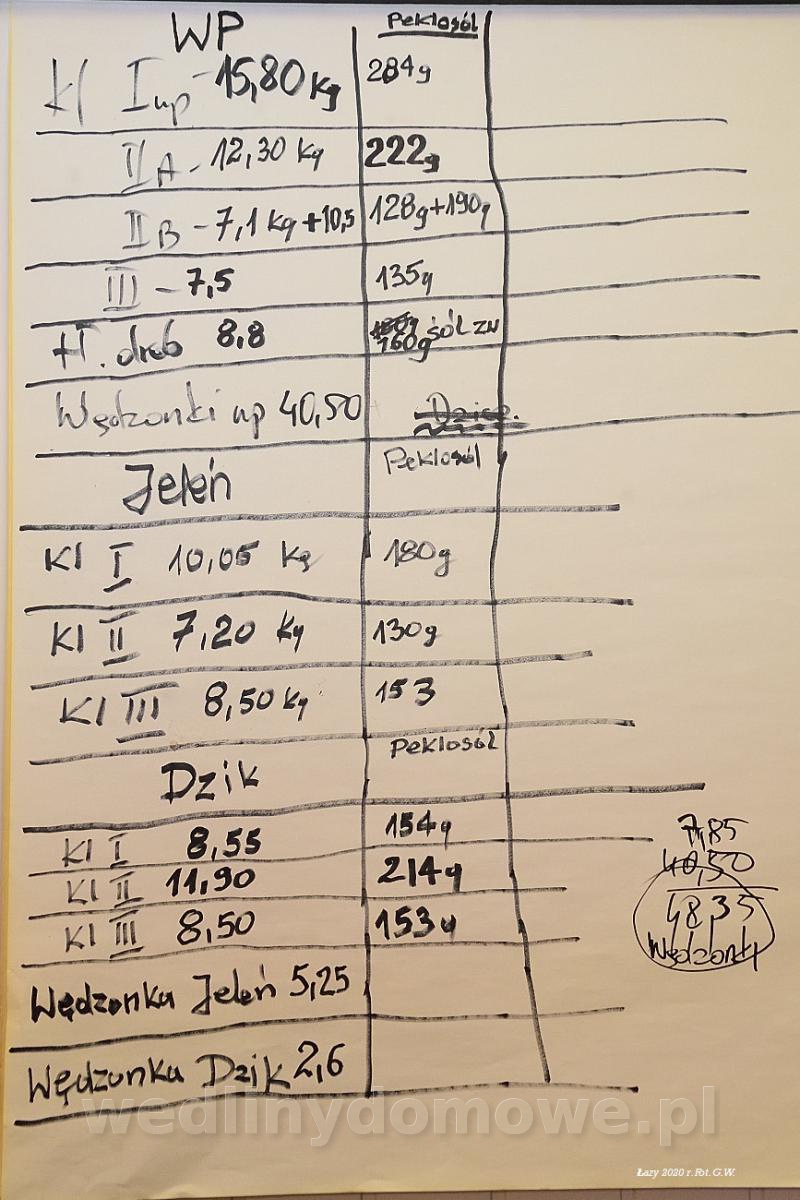 WP Peklosól
Kl I wp - 15,80 kg 284g
II A - 12,30 kg 222g
II B - 7,1 kg + 10,5 128g+190g
III - 7,5 135g
Tł. drob 8,8 160g sól zw
Wędzonki wp 40,50
Jeleń Peklosól
Kl I 10,05 kg 180g
Kl II 7,20 kg 130g
Kl III 8,50 kg 153
Dzik Peklosól
Kl I 8,55 154g
Kl II 11,90 214g
Kl III 8,50 153g
7,85
40,50
48,35
Wędzonki
Wędzonka Jeleń 5,25
Wędzonka Dzik 2,6
wedlinydomowe.pl
Łazy 2020 r. Fot. G.W.